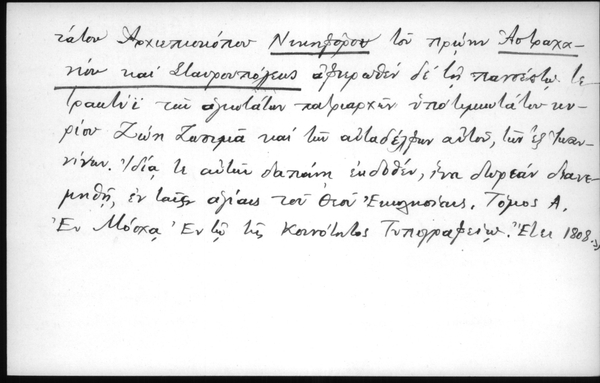 τάτου Ἀρχιεπισκόπου Νικηφόρου τοῦ πρώην Ἀστραχα-
νίου καὶ Σταυρουπόλεως ἀφιερωθὲν δὲ τῇ πανσέπτῳ τε-
τρακτύϊ τῶν ἁγιωτάτων πατριαρχῶν ὑπὸ τιμιωτάτου κυ-
ρίου Ζώη Ζωσιμᾶ καὶ τῶν αὐταδέλφων αὐτοῦ, τῶν ἐξ Ἰωαν-
νίνων. Ἰδίᾳ τε αὐτῶν δαπάνῃ ἐκδοθέν, ἵνα δωρεὰν διανε-
μηθῇ, ἐν ταῖς ἁγίαις τοῦ Θεοῦ Ἐκκλησίαις. Τόμος Α.
Ἐν Μόσχᾳ Ἐν τῷ τῆς Κοινότητος Τυπογραφείῳ. Ἔτει 1808.